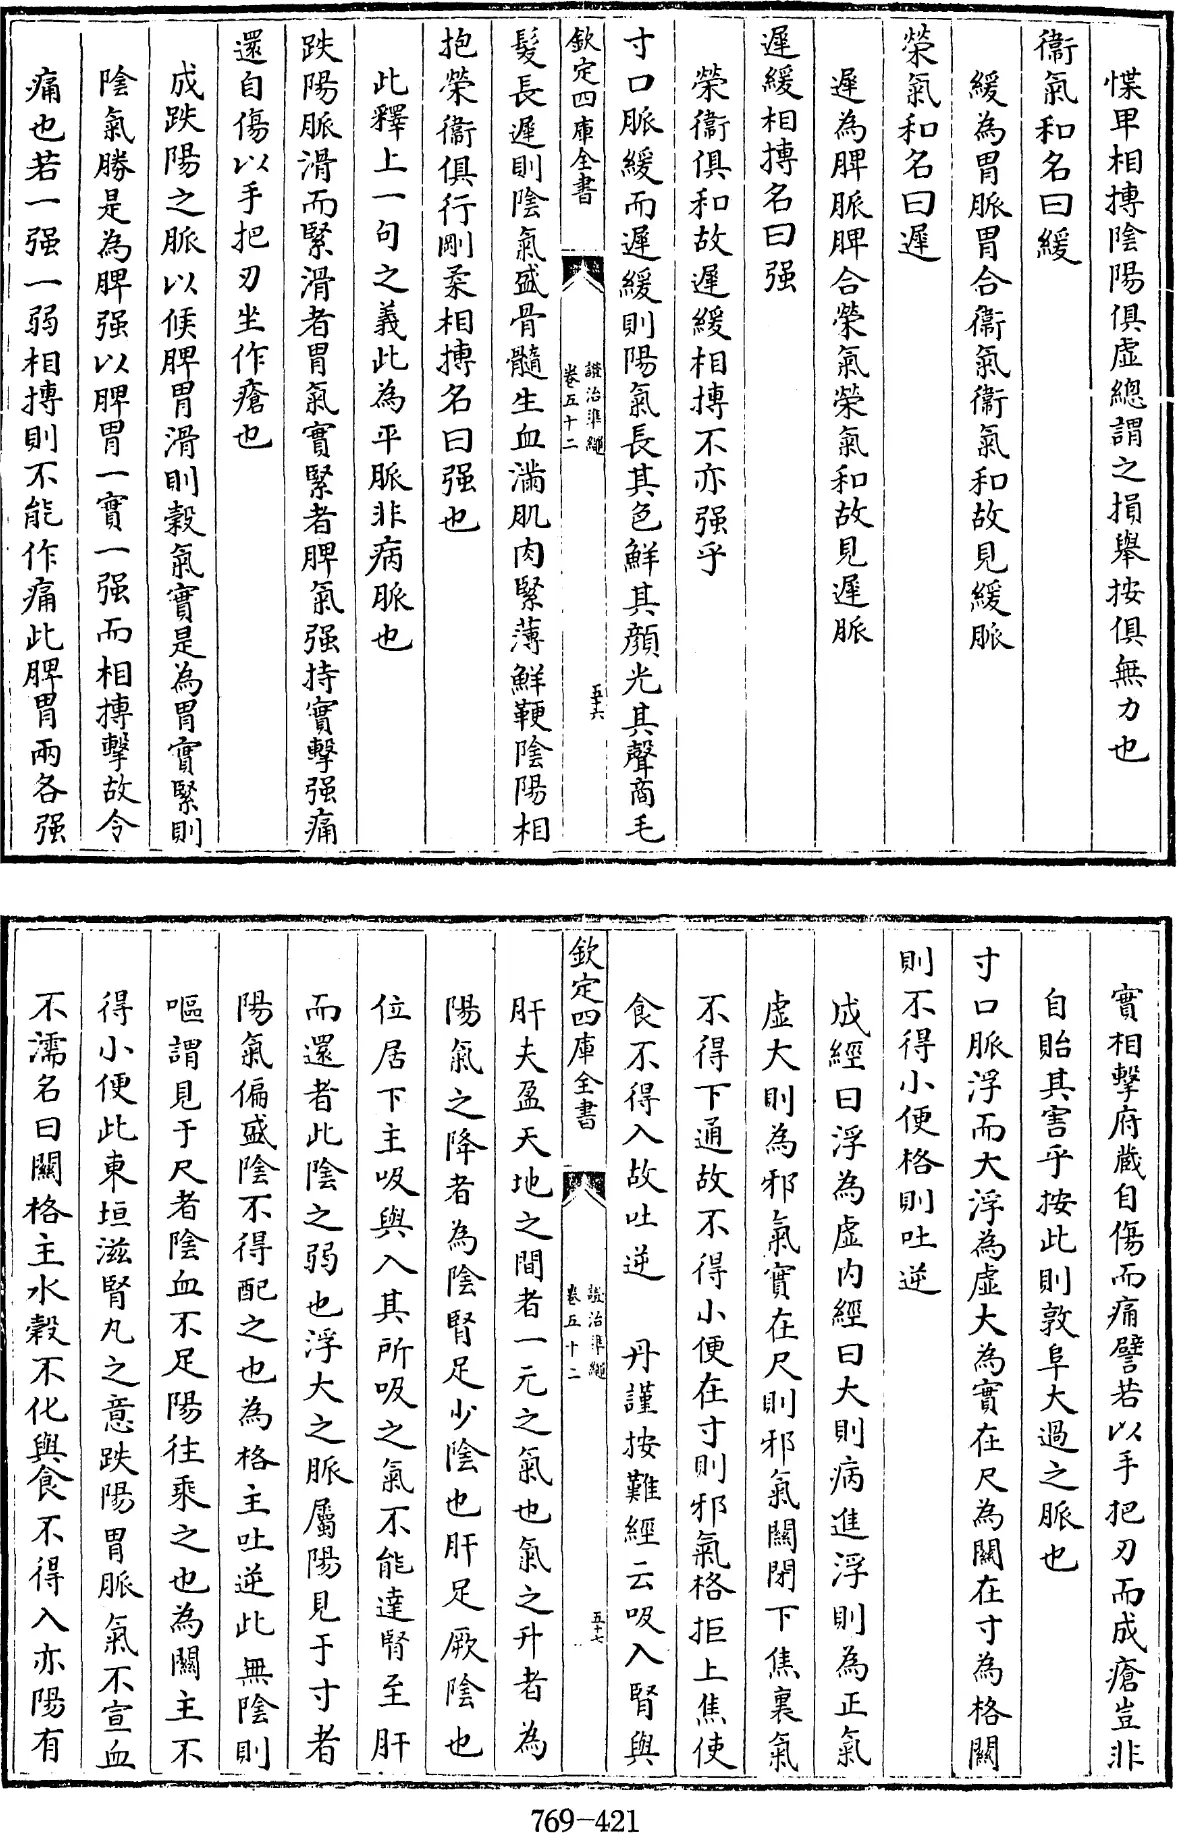 惵卑相搏陰陽俱虛總謂之損舉按俱無力也
衞氣和名曰緩
緩為胃脈胃合衞氣衞氣和故見緩脈
榮氣和名曰遲
遲為脾脈脾合榮氣榮氣和故見遲脈
遲緩相搏名曰强
榮衞俱和故遲緩相搏不亦强乎
寸口脈緩而遲緩則陽氣長其色鮮其顏光其聲商毛
欽定四庫全書
證治準繩
卷五十二
五十六
髮長遲則陰氣盛骨髓生血滿肌肉緊薄鮮鞕陰陽相
抱榮衞俱行剛柔相搏名曰强也
此釋上一句之義此為平脈非病脈也
趺陽脈滑而緊滑者胃氣實緊者脾氣强持實擊强痛
還自傷以手把刃坐作瘡也
成趺陽之脈以候脾胃滑則穀氣實是為胃實緊則
陰氣勝是為脾强以脾胃一實一强而相搏擊故令
痛也若一强一弱相搏則不能作痛此脾胃兩各强
實相擊府藏自傷而痛譬若以手把刃而成瘡豈非
自貽其害乎按此則敦阜大過之脈也
寸口脈浮而大浮為虛大為實在尺為關在寸為格關
則不得小便格則吐逆
成經曰浮為虛內經曰大則病進浮則為正氣
虛大則為邪氣實在尺則邪氣關閉下焦裏氣
不得下通故不得小便在寸則邪氣格拒上焦使
食不得入故吐逆　丹謹按難經云吸入腎與
欽定四庫全書
證治準繩
卷五十二
五十七
肝夫盈天地之間者一元之氣也氣之升者為
陽氣之降者為陰腎足少陰也肝足厥陰也
位居下主吸與入其所吸之氣不能達腎至肝
而還者此陰之弱也浮大之脈屬陽見于寸者
陽氣偏盛陰不得配之也為格主吐逆此無陰則
嘔謂見于尺者陰血不足陽往乘之也為關主不
得小便此東垣滋腎丸之意趺陽胃脈氣不宣血
不濡名曰關格主水穀不化與食不得入亦陽有
769-421